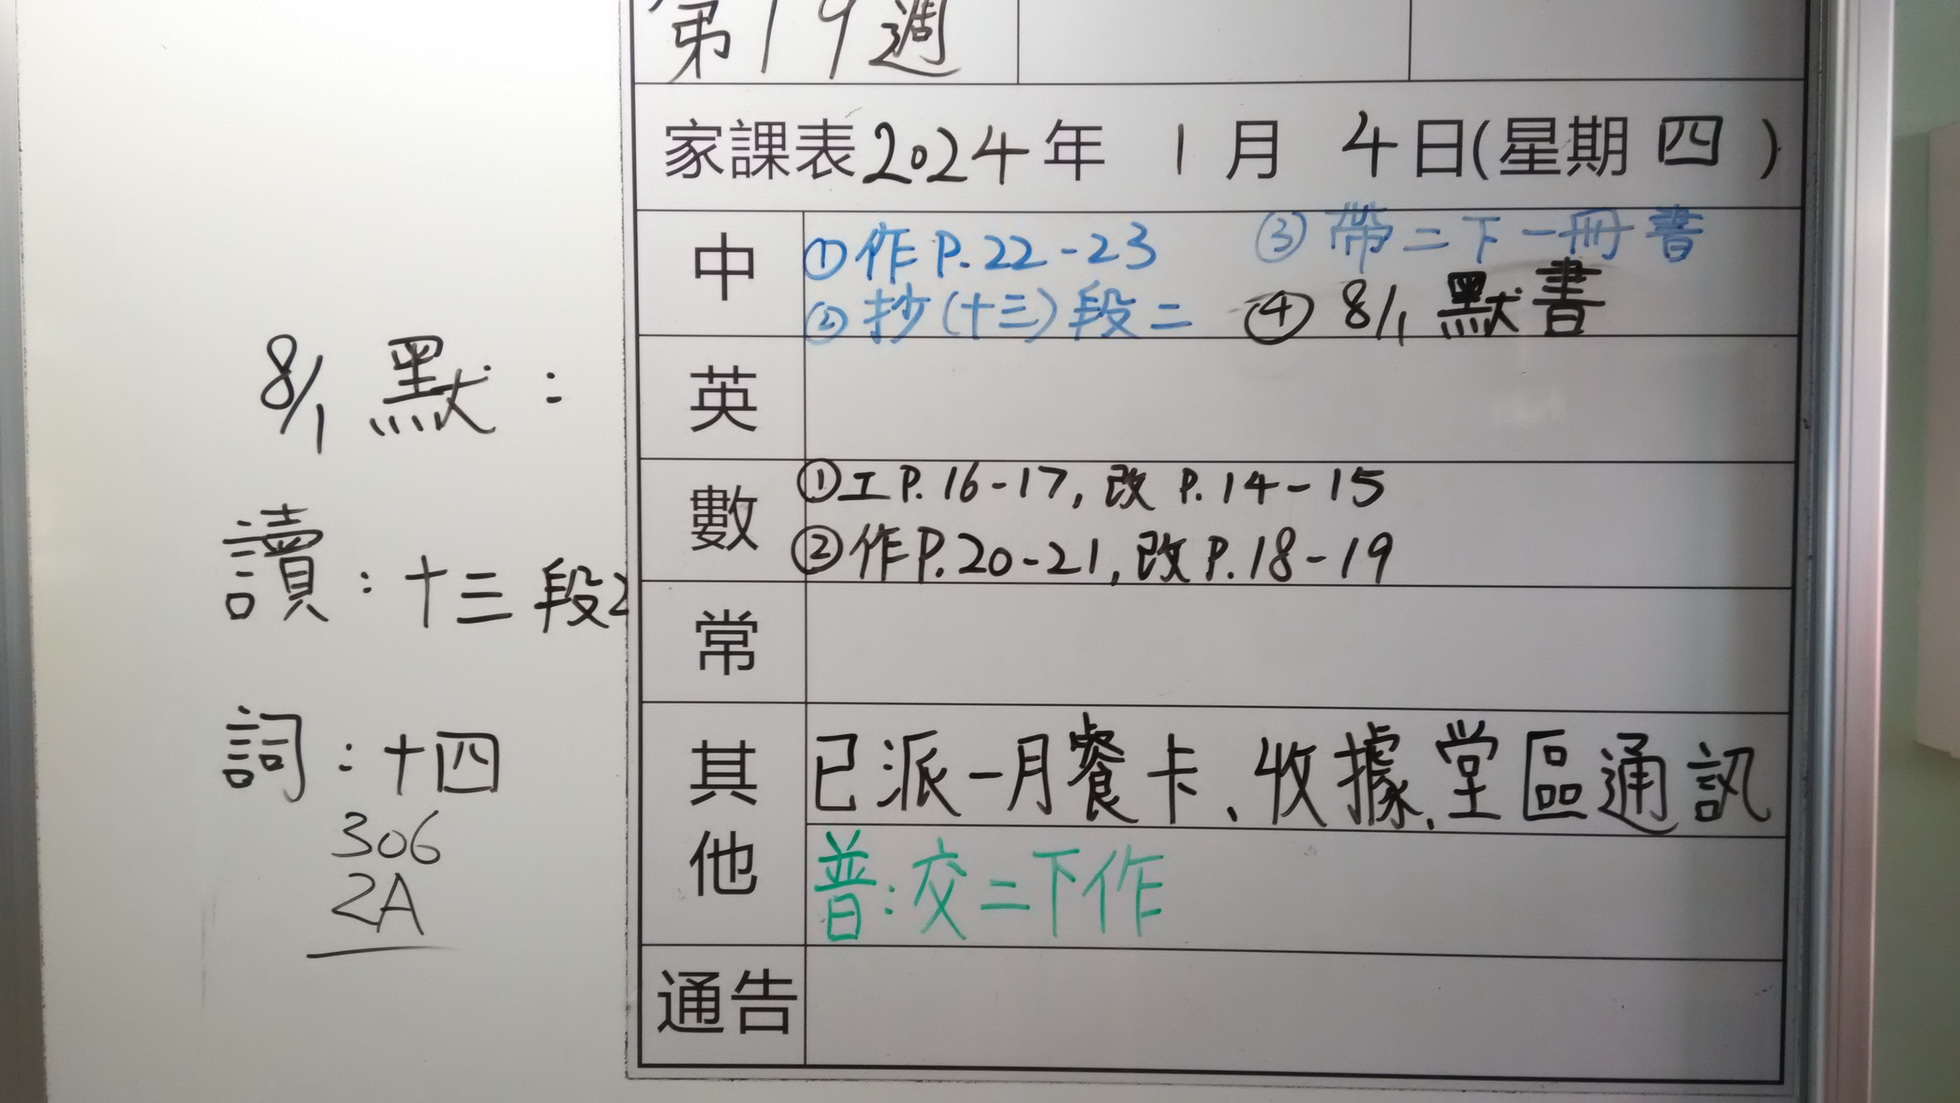 第19週
家課表2024年 1月 4日(星期四)
中 ①作P.22-23 ③帶二下一冊書
②抄(十三)段二 ④8/1默書
英
數 ①工P.16-17,改P.14-15
②作P.20-21,改P.18-19
常
其他 已派一月餐卡、收據、堂區通訊
普:交二下作
通告
8/1默:
讀:十三段2
詞:十四
306
2A